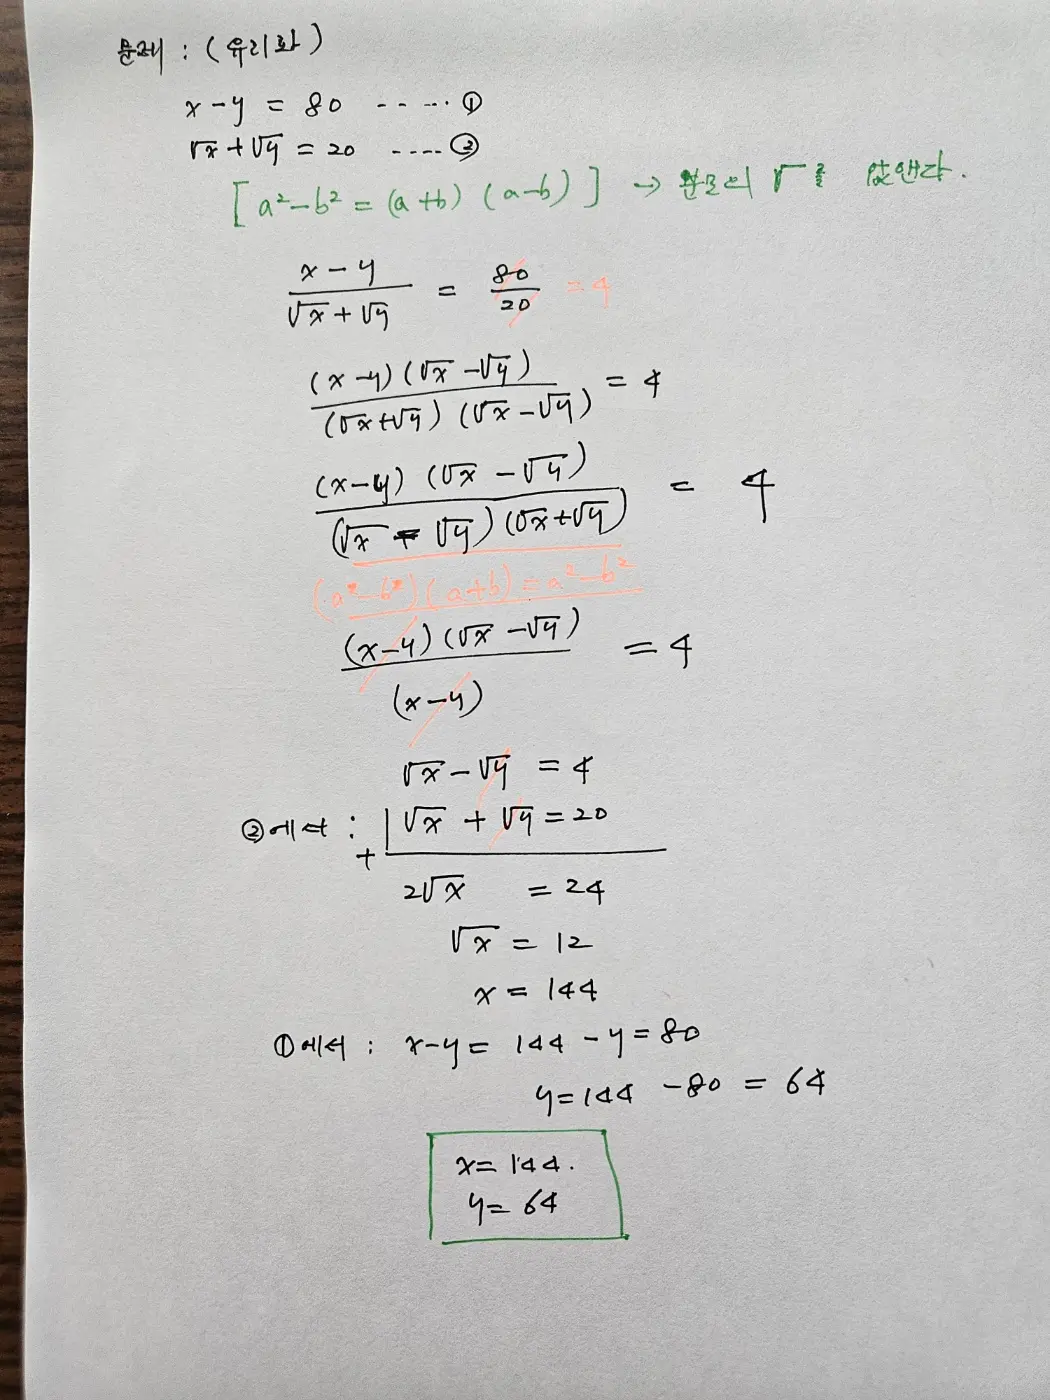 문제 : (유리화)
x - y = 80 ----- ①
√x + √y = 20 ---- ②
[ a² - b² = (a+b) (a-b) ] → 분모의 √ 를 없앤다.
(x - y) / (√x + √y) = 80/20 = 4
(x-y)(√x - √y) / (√x+√y)(√x - √y) = 4
(x-y)(√x - √y) / (√x - √y)(√x+√y) = 4
(a² - b²)(a+b) = a² - b²
(x-y)(√x - √y) / (x-y) = 4
√x - √y = 4
②에서 : + | √x + √y = 20
2√x = 24
√x = 12
x = 144
①에서 : x-y = 144 - y = 80
y = 144 - 80 = 64
x = 144.
y = 64